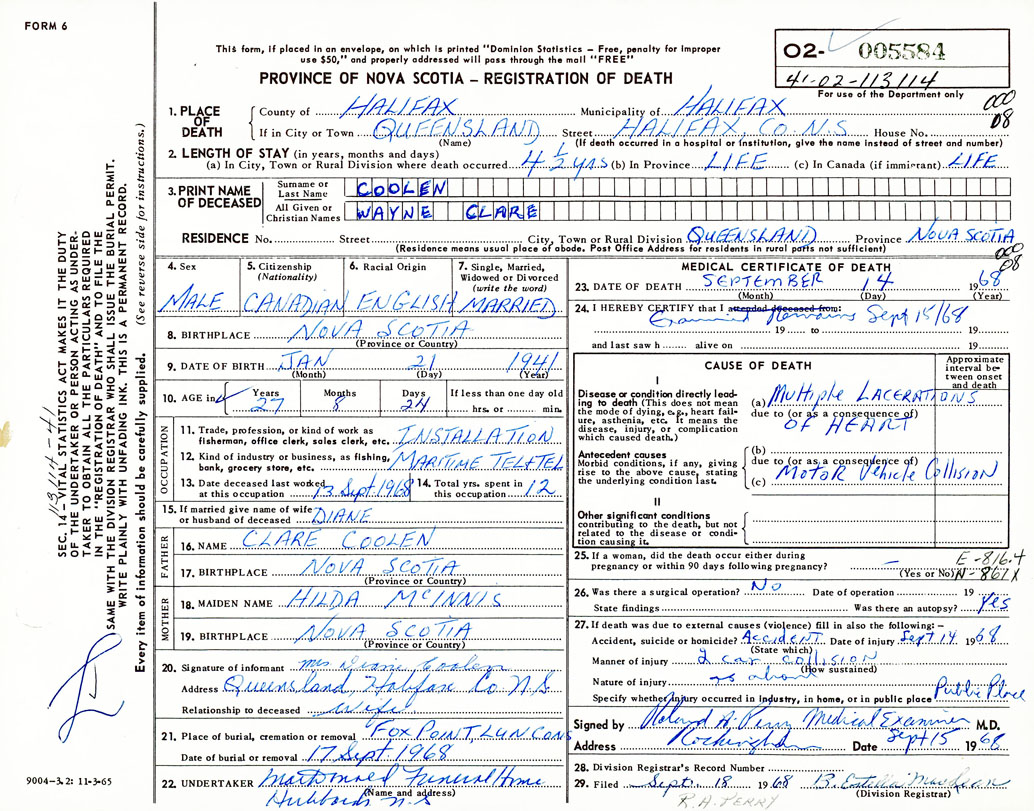 FORM 6
This form, if placed in an envelope, on which is printed "Dominion Statistics – Free, penalty for improper
use $50," and properly addressed will pass through the mail "FREE"
PROVINCE OF NOVA SCOTIA – REGISTRATION OF DEATH
02- 005584
41-02-113114
For use of the Department only
000
08
1. PLACE OF DEATH
County of HALIFAX Municipality of HALIFAX
If in City or Town QUEENSLAND Street HALIFAX, CO. N.S House No.
(Name) (If death occurred in a hospital or institution, give the name instead of street and number)
2. LENGTH OF STAY (in years, months and days)
(a) In City, Town or Rural Division where death occurred 4 1/2 yrs (b) In Province LIFE (c) In Canada (if immigrant) LIFE
3. PRINT NAME OF DECEASED
Surname or Last Name COOLEN
All Given or Christian Names WAYNE CLARE
RESIDENCE No. Street City, Town or Rural Division QUEENSLAND Province NOVA SCOTIA
(Residence means usual place of abode. Post Office Address for residents in rural parts not sufficient)
000
08
4. Sex MALE
5. Citizenship (Nationality) CANADIAN
6. Racial Origin ENGLISH
7. Single, Married, Widowed or Divorced (write the word) MARRIED
8. BIRTHPLACE NOVA SCOTIA
(Province or Country)
9. DATE OF BIRTH JAN 21 1941
(Month) (Day) (Year)
10. AGE in Years 27 Months 8 Days 24 If less than one day old hrs. or min.
OCCUPATION
11. Trade, profession or kind of work as
fisherman, office clerk, sales clerk, etc. INSTALLATION
12. Kind of industry or business, as fishing,
bank, grocery store, etc. MARITIME TEL+TEL
13. Date deceased last worked
at this occupation 13 Sept 1968
14. Total yrs. spent in
this occupation 12
15. If married give name of wife
or husband of deceased DIANE
FATHER
16. NAME CLARE COOLEN
17. BIRTHPLACE NOVA SCOTIA
(Province or Country)
MOTHER
18. MAIDEN NAME HILDA McINNIS
19. BIRTHPLACE NOVA SCOTIA
(Province or Country)
20. Signature of informant Mrs Diane Coolen
Address Queensland, Halifax Co N.S
Relationship to deceased Wife
21. Place of burial, cremation or removal FOX POINT, LUN CO NS
Date of burial or removal 17 Sept 1968
22. UNDERTAKER MacDonald Funeral Home
(Name and address)
Hubbards N.S
MEDICAL CERTIFICATE OF DEATH
23. DATE OF DEATH SEPTEMBER 14 1968
(Month) (Day) (Year)
24. I HEREBY CERTIFY that I attended deceased from:
Examined Remains Sept 15/68
19 to 19
and last saw h alive on 19
CAUSE OF DEATH
Approximate interval between onset and death
I
Disease or condition directly leading to death (This does not mean the mode of dying, e.g., heart failure, asthenia, etc. It means the disease, injury, or complication which caused death.)
(a) Multiple LACERATIONS
due to (or as a consequence of)
OF HEART
Antecedent causes
Morbid conditions, if any, giving rise to the above cause, stating the underlying condition last.
(b)
due to (or as a consequence of)
(c) Motor Vehicle Collision
II
Other significant conditions
contributing to the death, but not related to the disease or condition causing it.
25. If a woman, did the death occur either during
pregnancy or within 90 days following pregnancy? –
(Yes or No)
E-816.4
N-861X
26. Was there a surgical operation? No Date of operation 19
State findings Was there an autopsy? Yes
27. If death was due to external causes (violence) fill in also the following: –
Accident, suicide or homicide? Accident Date of injury Sept 14 1968
(State which)
Manner of injury 2 car collision
(How sustained)
Nature of injury as above
Specify whether injury occurred in industry, in home, or in public place Public Place
Signed by Roland A. Perry Medical Examiner M.D.
Address Rockingham Date Sept 15 1968
28. Division Registrar's Record Number
29. Filed Sept. 18 1968 B. Estella
(Division Registrar)
R.A. PERRY
SEC. 14 – VITAL STATISTICS ACT MAKES IT THE DUTY
OF THE UNDERTAKER OR PERSON ACTING AS UNDER-
TAKER TO OBTAIN ALL THE PARTICULARS REQUIRED
IN THE "REGISTRATION OF DEATH" AND TO FILE THE
SAME WITH THE DIVISION REGISTRAR WHO SHALL ISSUE THE BURIAL PERMIT.
WRITE PLAINLY WITH UNFADING INK. THIS IS A PERMANENT RECORD.
Every item of information should be carefully supplied. (See reverse side for instructions.)
113114-41
9004-3.2: 11-3-65